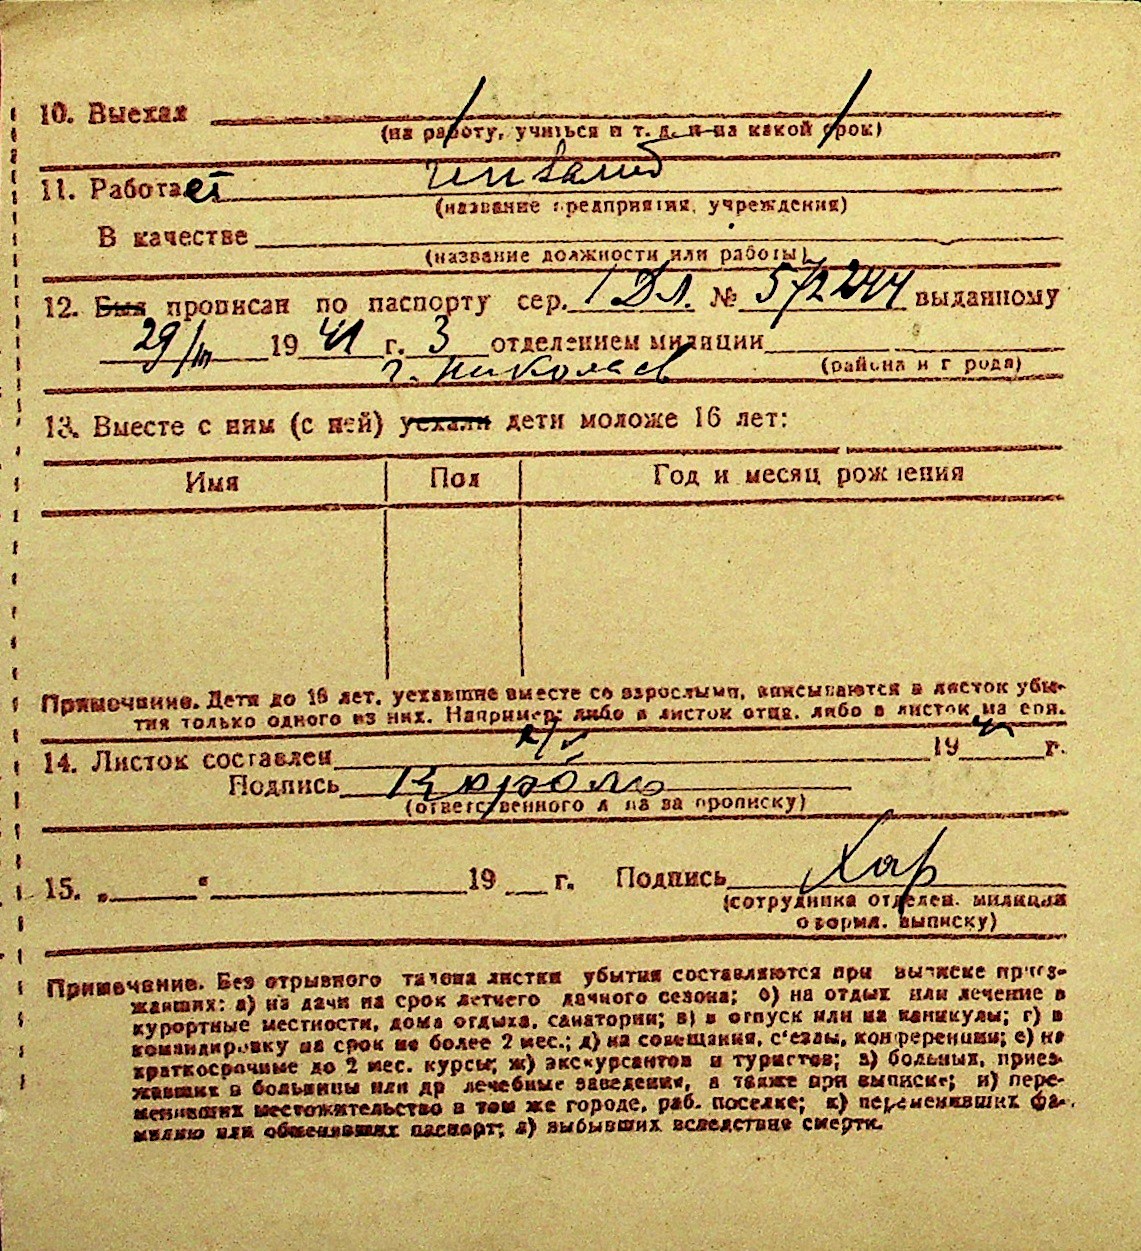 10. Выехал
(на работу, учиться и т. д. и на какой срок)
инвалид
11. Работает
(название предприятия, учреждения)
В качестве
(название должности или работы)
12. Был прописан по паспорту сер. 1 ДЛ. № 572244 выданному
29/III 1941 г. 3 отделением милиции
г. Николаев (района и города)
13. Вместе с ним (с ней) уехали дети моложе 16 лет:
Имя Пол Год и месяц рождения
Примечание. Дети до 16 лет, уехавшие вместе со взрослыми, вписываются в листок убы-
тия только одного из них. Например: либо в листок отца, либо в листок матери.
14. Листок составлен 19 г.
Подпись Король
(ответственного лица за прописку)
15. „ “ 19 г. Подпись Хар
(сотрудника отделен. милиции
оформл. выписку)
Примечание. Без отрывного талона листки убытия составляются при выписке приез-
жавших: а) на дачи на срок летнего дачного сезона; б) на отдых или лечение в
курортные местности, дома отдыха, санатории; в) в отпуск или на каникулы; г) в
командировку на срок не более 2 мес.; д) на совещания, с'езды, конференции; е) на
краткосрочные до 2 мес. курсы; ж) экскурсантов и туристов; з) больных, приез-
жавших в больницы или др лечебные заведения, а также при выписке; и) пере-
менивших местожительство в том же городе, раб. поселке; к) переменивших фа-
милию или обменявших паспорт; л) выбывших вследствие смерти.